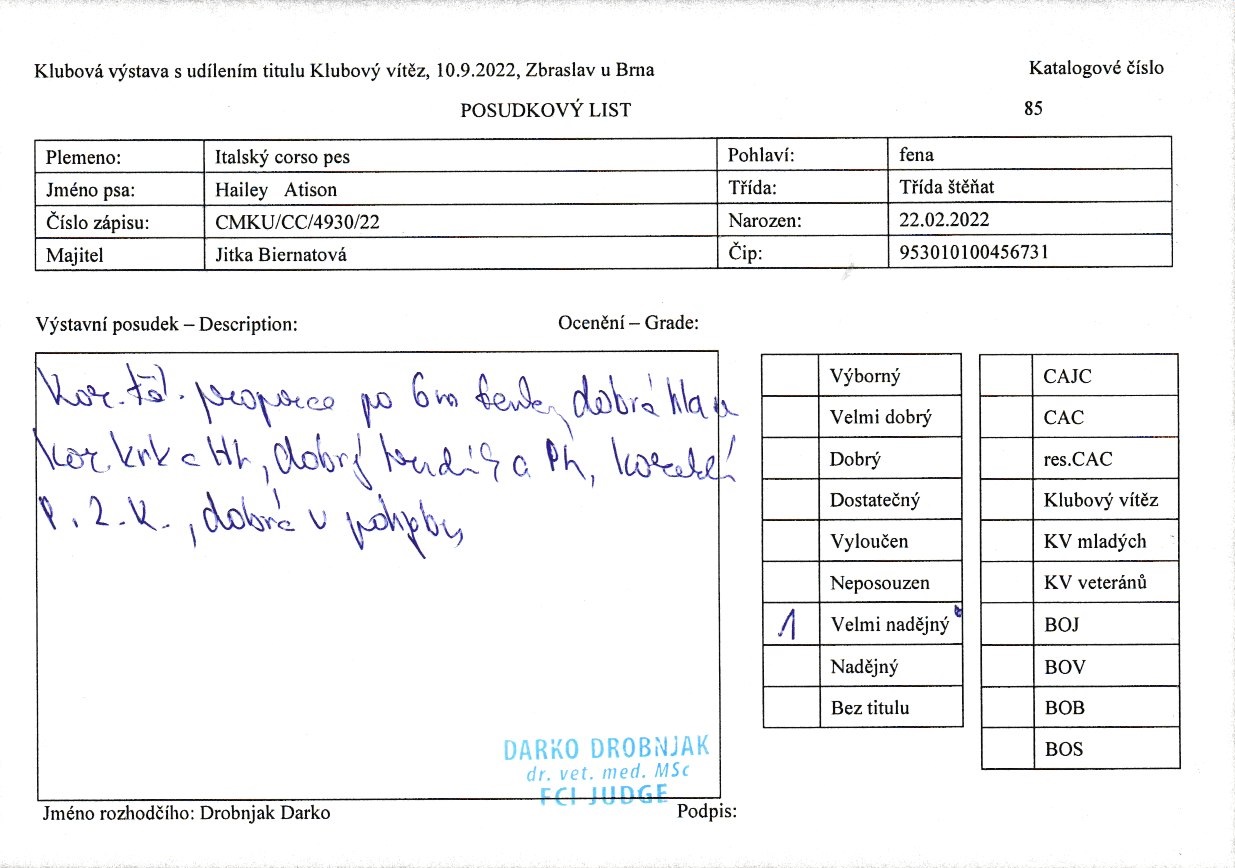 Klubová výstava s udílením titulu Klubový vítěz, 10.9.2022, Zbraslav u Brna
Katalogové číslo
POSUDKOVÝ LIST
85
Plemeno: Italský corso pes Pohlaví: fena
Jméno psa: Hailey Atison Třída: Třída štěňat
Číslo zápisu: CMKU/CC/4930/22 Narozen: 22.02.2022
Majitel Jitka Biernatová Čip: 953010100456731
Výstavní posudek – Description:
Ocenění – Grade:
Kor. těl. proporce po 6m dobrá hlava
Kor. krk a Hh, dobrý hrudník a Ph,
P. Z. K., dobrá v pohybu
Výborný
Velmi dobrý
Dobrý
Dostatečný
Vyloučen
Neposouzen
1 Velmi nadějný
Nadějný
Bez titulu
CAJC
CAC
res.CAC
Klubový vítěz
KV mladých
KV veteránů
BOJ
BOV
BOB
BOS
DARKO DROBNJAK
dr. vet. med. MSc
FCI JUDGE
Jméno rozhodčího: Drobnjak Darko
Podpis: